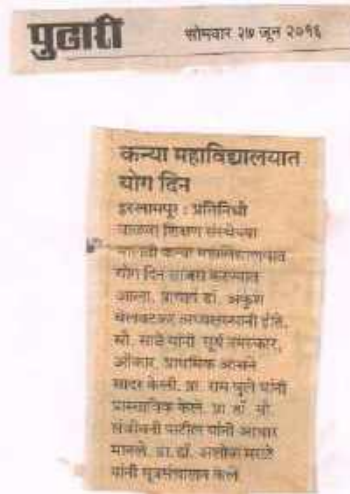 पुढारी
सोमवार २७ जून २०१६
कन्या महाविद्यालयात
योग दिन
इस्लामपूर : प्रतिनिधी
शिक्षण संस्थेच्या
कन्या महाविद्यालयात
योग दिन साजरा करण्यात
आला. प्राचार्य डॉ. अंकुश
बेलवटकर अध्यक्षस्थानी होते.
सौ. साळे यांनी सूर्य नमस्कार,
ओंकार, प्राथमिक आसने
सादर केली. प्रा. राम घुले यांनी
प्रास्ताविक केले. प्रा. डॉ. सौ.
संजीवनी पाटील यांनी आभार
मानले. प्रा. डॉ. अशोक मराठे
यांनी सूत्रसंचालन केले